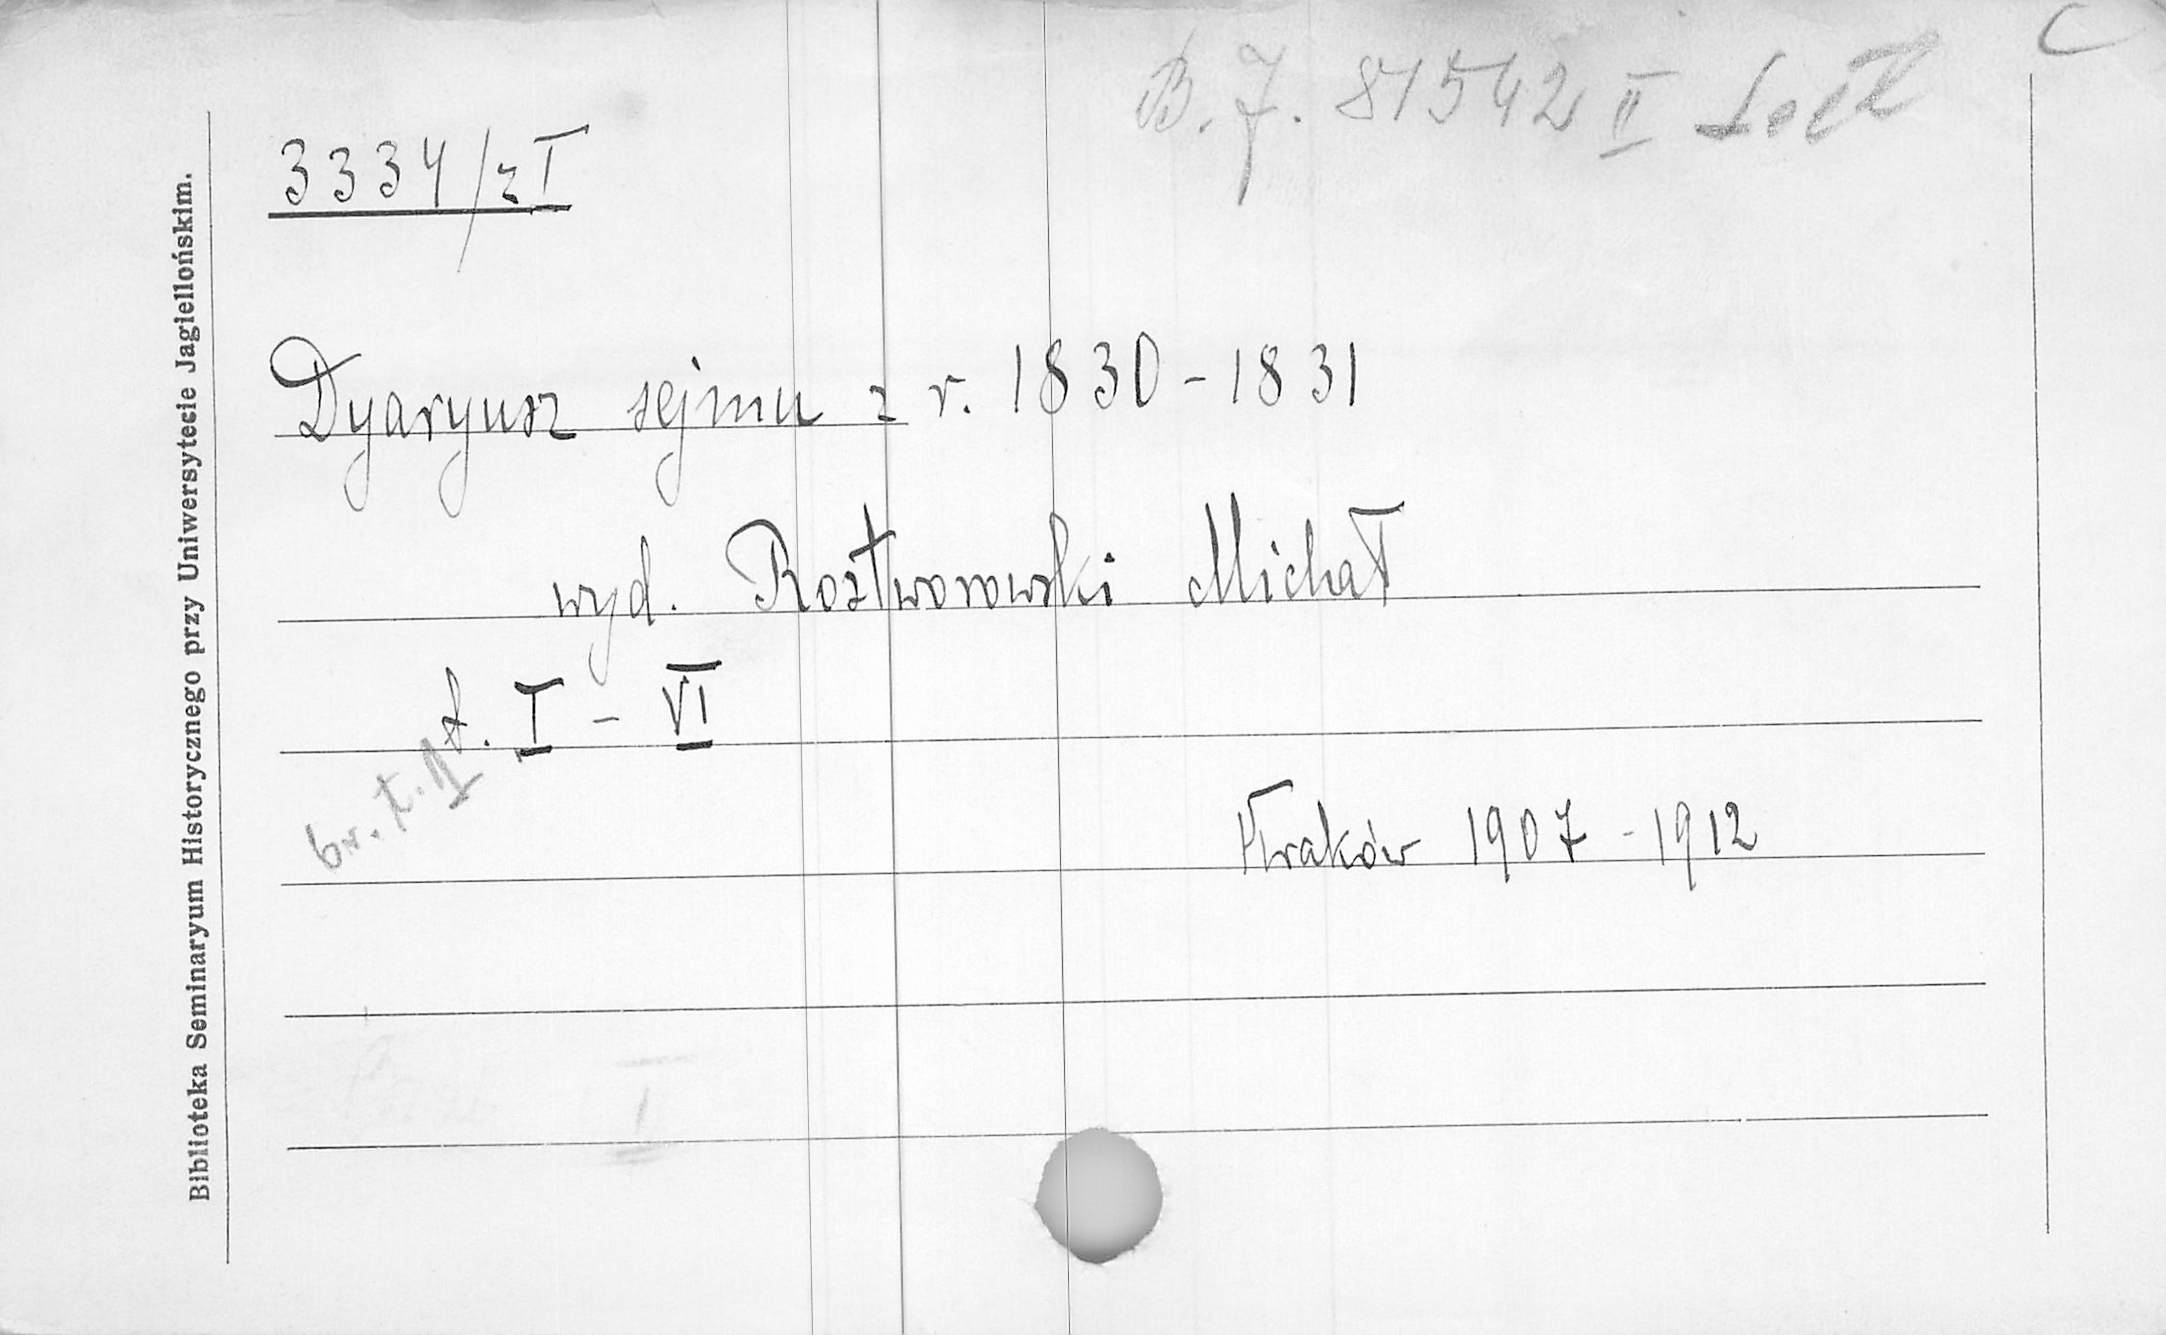 C
B. J. 81542 II
3334/z I
Dyaryusz sejmu z r. 1830-1831
wyd. Rostworowski Michał
t. I - VI
br. t. II
Kraków 1907 - 1912
Biblioteka Seminaryum Historycznego przy Uniwersytecie Jagiellońskim.